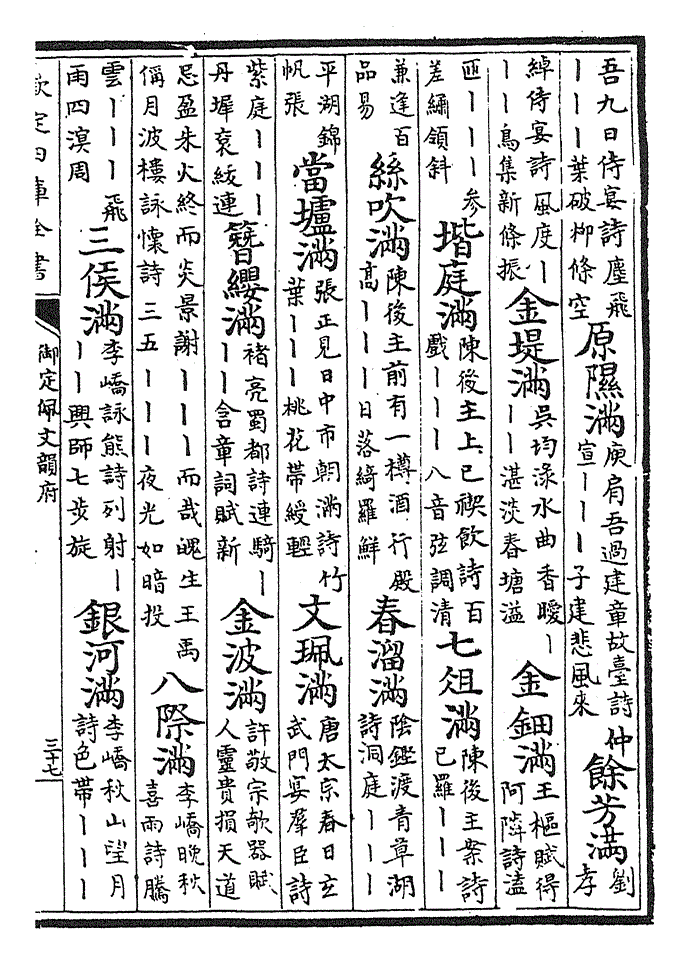 吾九日侍宴詩塵飛｜｜｜葉破柳條空 原隰滿 庾肩吾過建章故臺詩仲宣｜｜｜子建悲風來 餘芳滿 劉孝
綽侍宴詩風度｜｜｜鳥集新條振 金堤滿 吳均淥水曲香曖｜｜｜湛淡春塘溢 金鈿滿 王樞賦得阿隣詩溘
匝｜｜｜参差繡領斜 堦庭滿 陳後主上巳禊飲詩百戲｜｜｜八音弦調清 七俎滿 陳後主案詩已羅｜｜｜
兼逢百品易 絲吹滿 陳後主前有一樽酒行殿高｜｜｜日落綺羅鮮 春溜滿 陰鏗渡青草湖詩洞庭｜｜｜
平湖錦帆張 當壚滿 張正見日中市朝滿詩竹葉｜｜｜桃花帶綬輕 文珮滿 唐太宗春日玄武門宴羣臣詩
紫庭｜｜｜丹墀衮紱連 簪纓滿 褚亮蜀都詩連騎｜｜｜含章詞賦新 金波滿 許敬宗欹器賦人靈貴損天道
忌盈朱火終而炎景謝｜｜｜而哉魄生王禹偁月波樓詠懷詩三五｜｜｜夜光如暗投 八際滿 李嶠晚秋喜雨詩騰
雲｜｜｜飛雨四溟周 三侯滿 李嶠詠熊詩列射｜｜｜興師七步旋 銀河滿 李嶠秋山望月詩色帶｜｜｜
欽定四庫全書 御定佩文韻府 三十七